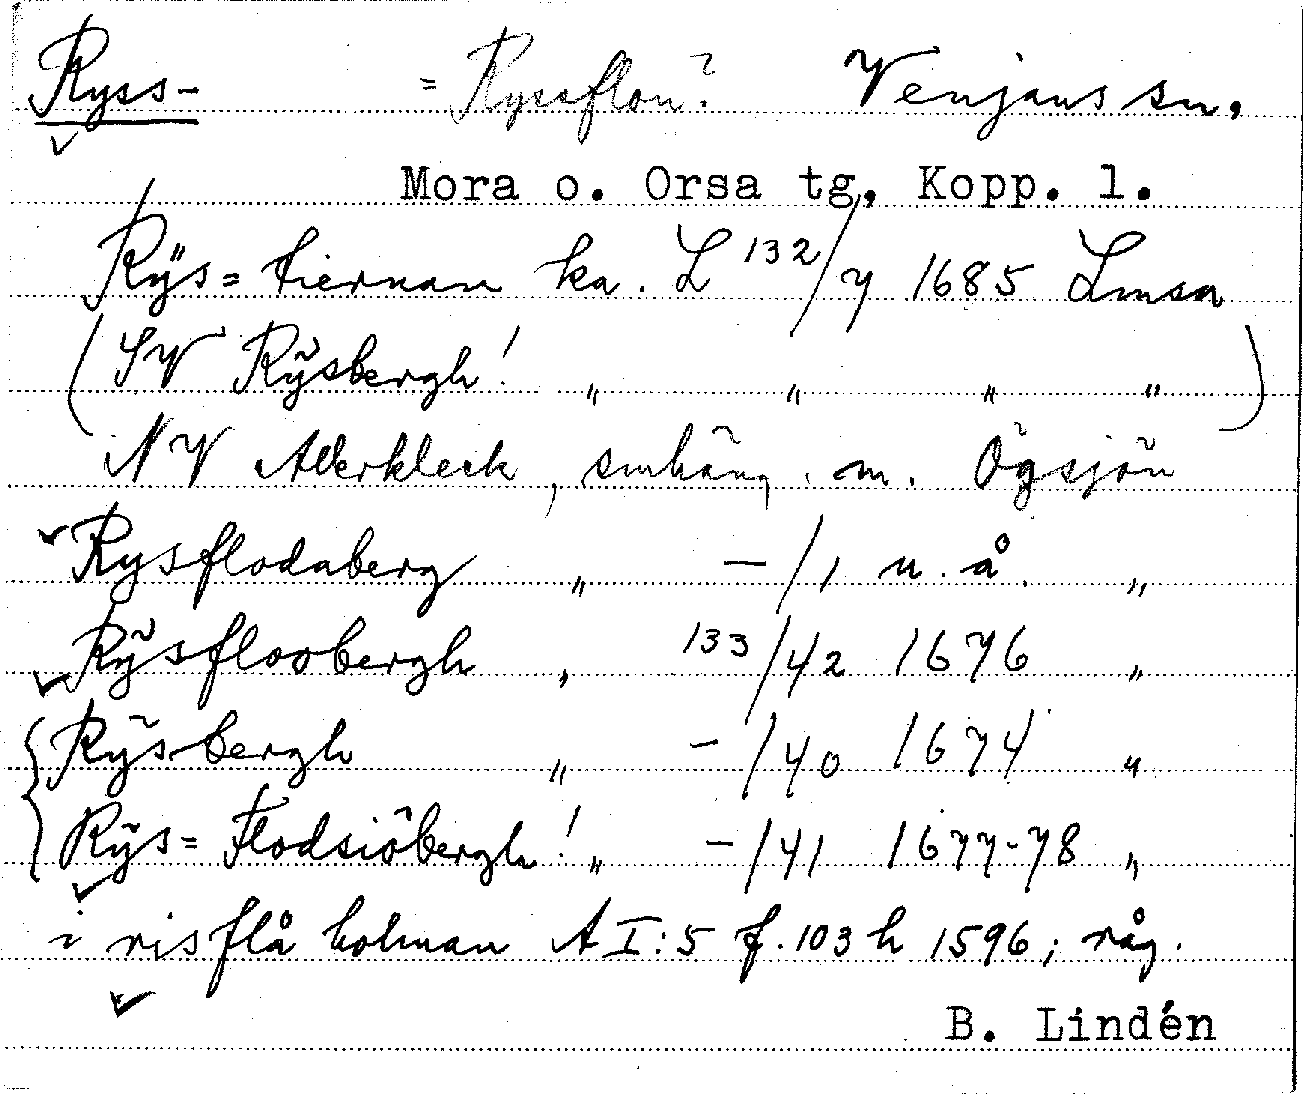 Ryss- = Ryssflon? Venjans sn.
Mora o. Orsa tg, Kopp. l.
Rÿs= tiernan ka. L 132/7 1685 Lmsa
(SV Rÿsbergh! „ „ „ „)
NV Allerkleck, smhäng. m. Ögsjön
Rysflodaberg „ —/1 u. å. „
Rÿsfloobergh „ 133/42 1676 „
{Rÿsbergh „ —/40 1674 „
Rÿs= Flodsiöbergh! „ —/41 1677-78 „
i risflå holman A I:5 f. 103 h 1596; råg.
B. Lindén